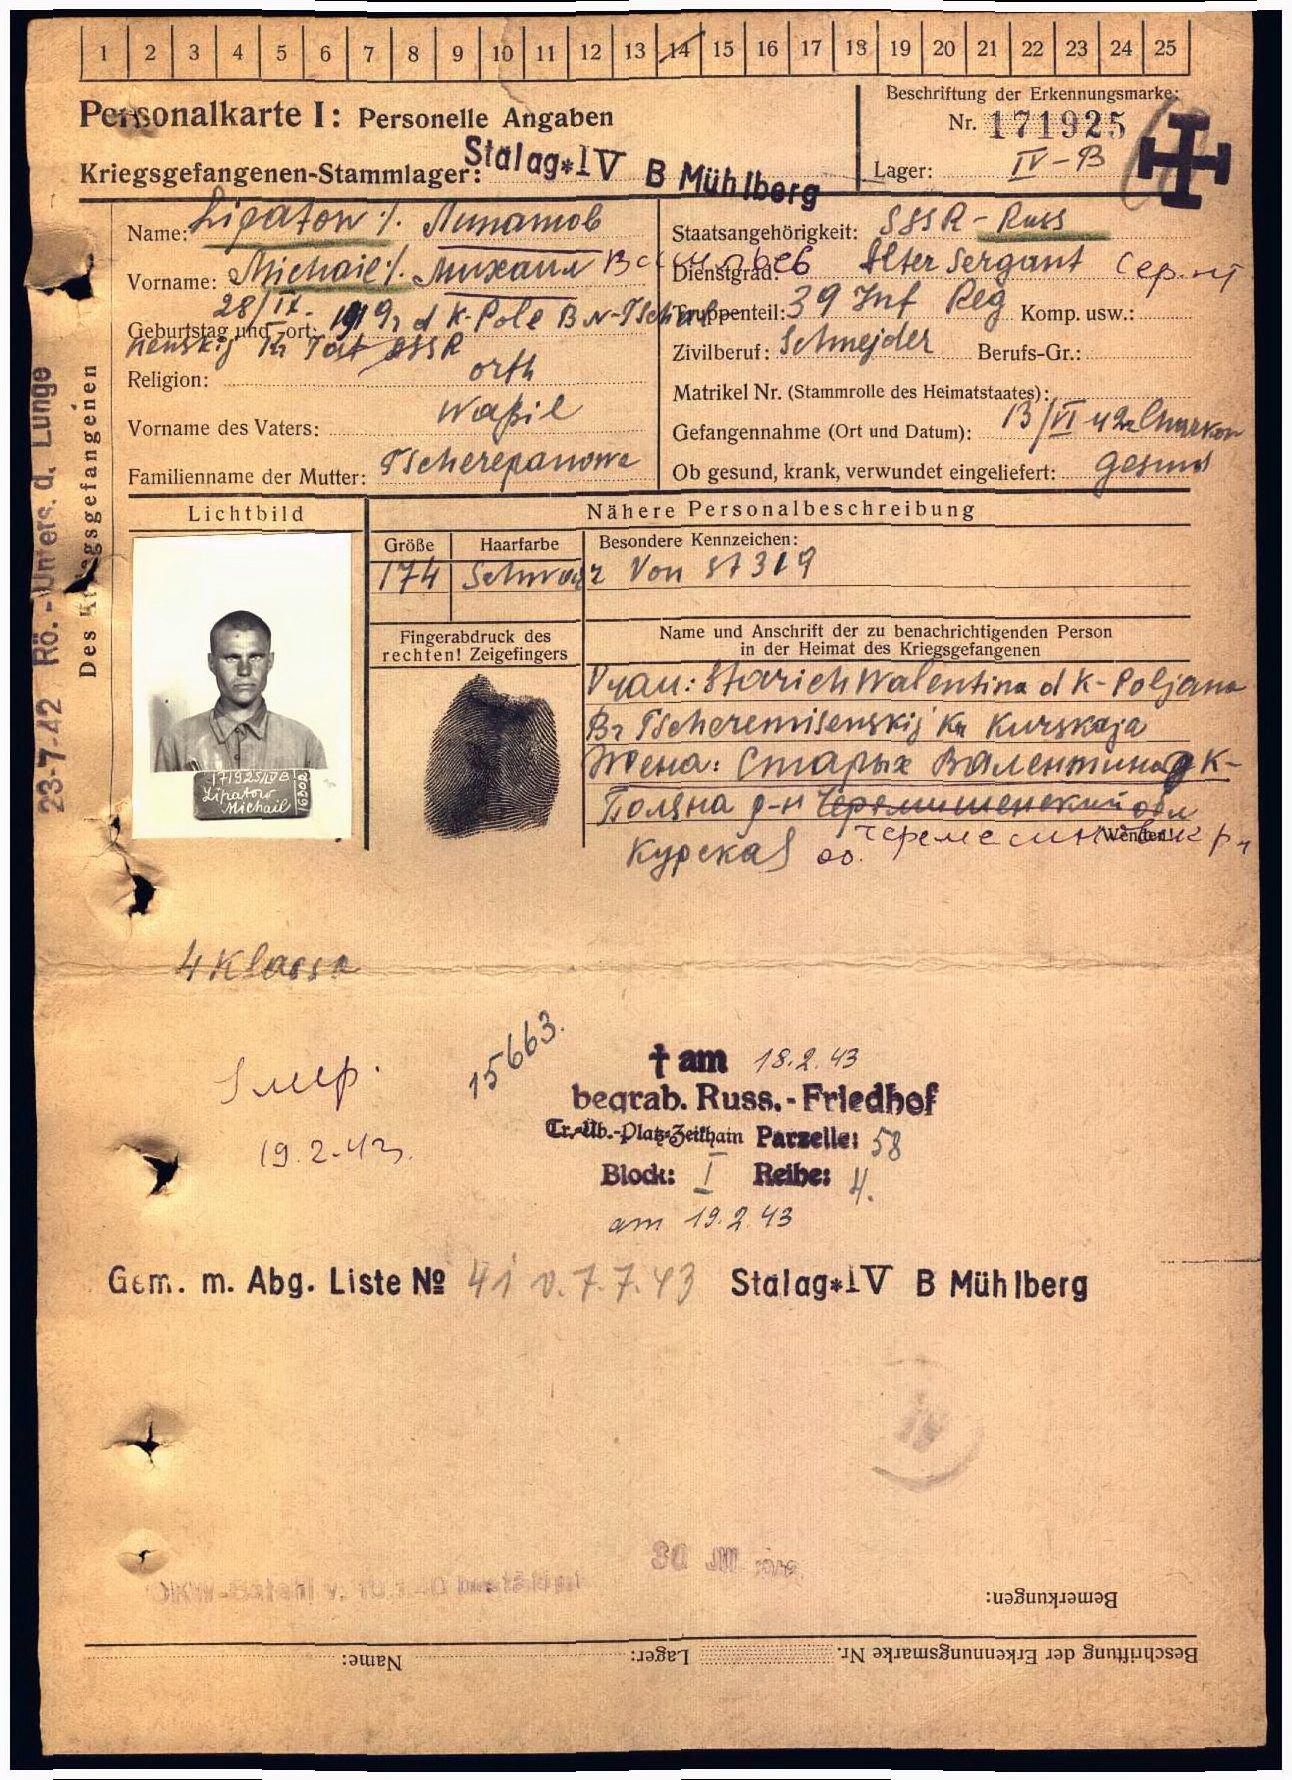 1 2 3 4 5 6 7 8 9 10 11 12 13 14 15 16 17 18 19 20 21 22 23 24 25
Personalkarte I: Personelle Angaben
Kriegsgefangenen-Stammlager: Stalag*IV B Mühlberg
Beschriftung der Erkennungsmarke:
Nr. 171925
Lager: IV-B
Des Kriegsgefangenen
23-7-42 Rö.-Unters. d. Lunge
Name: Lipatow ·/. Липатов
Vorname: Michail ·/. Михаил Васильев
28/IX.
Geburtstag und -ort: 1919 d K-Pole
Religion: orth
Vorname des Vaters: Waßil
Familienname der Mutter: Tscherepanowa
Staatsangehörigkeit: SSSR - Russ
Dienstgrad: Alter Sergant
Truppenteil: 39 Inf Reg Komp. usw.:
Zivilberuf: Schnejder Berufs-Gr.:
Matrikel Nr. (Stammrolle des Heimatstaates):
Gefangennahme (Ort und Datum): 13/VI 42
Ob gesund, krank, verwundet eingeliefert: gesund
Lichtbild
171925/IV B
Lipatow
Michail
Nähere Personalbeschreibung
Größe Haarfarbe Besondere Kennzeichen:
174 Schwarz Von St 319
Fingerabdruck des
rechten! Zeigefingers
Name und Anschrift der zu benachrichtigenden Person
in der Heimat des Kriegsgefangenen
Starich Walentina d K-Poljana
Tscheremisenskij Kr Kurskaja
Жена: Старых Валентина д К-
Поляна р-н Черемишенский обл
Wenden!
Курская
4 Klassa
Умер.
19.2.43.
15663.
† am 18.2.43
begrab. Russ.-Friedhof
Tr.-Üb.-Platz-Zeithain Parzelle: 58
Block: I Reihe: 4.
am 19.2.43
Gem. m. Abg. Liste No 41 v. 7.7.43 Stalag*IV B Mühlberg
Bemerkungen:
Beschriftung der Erkennungsmarke Nr. Lager: Name: